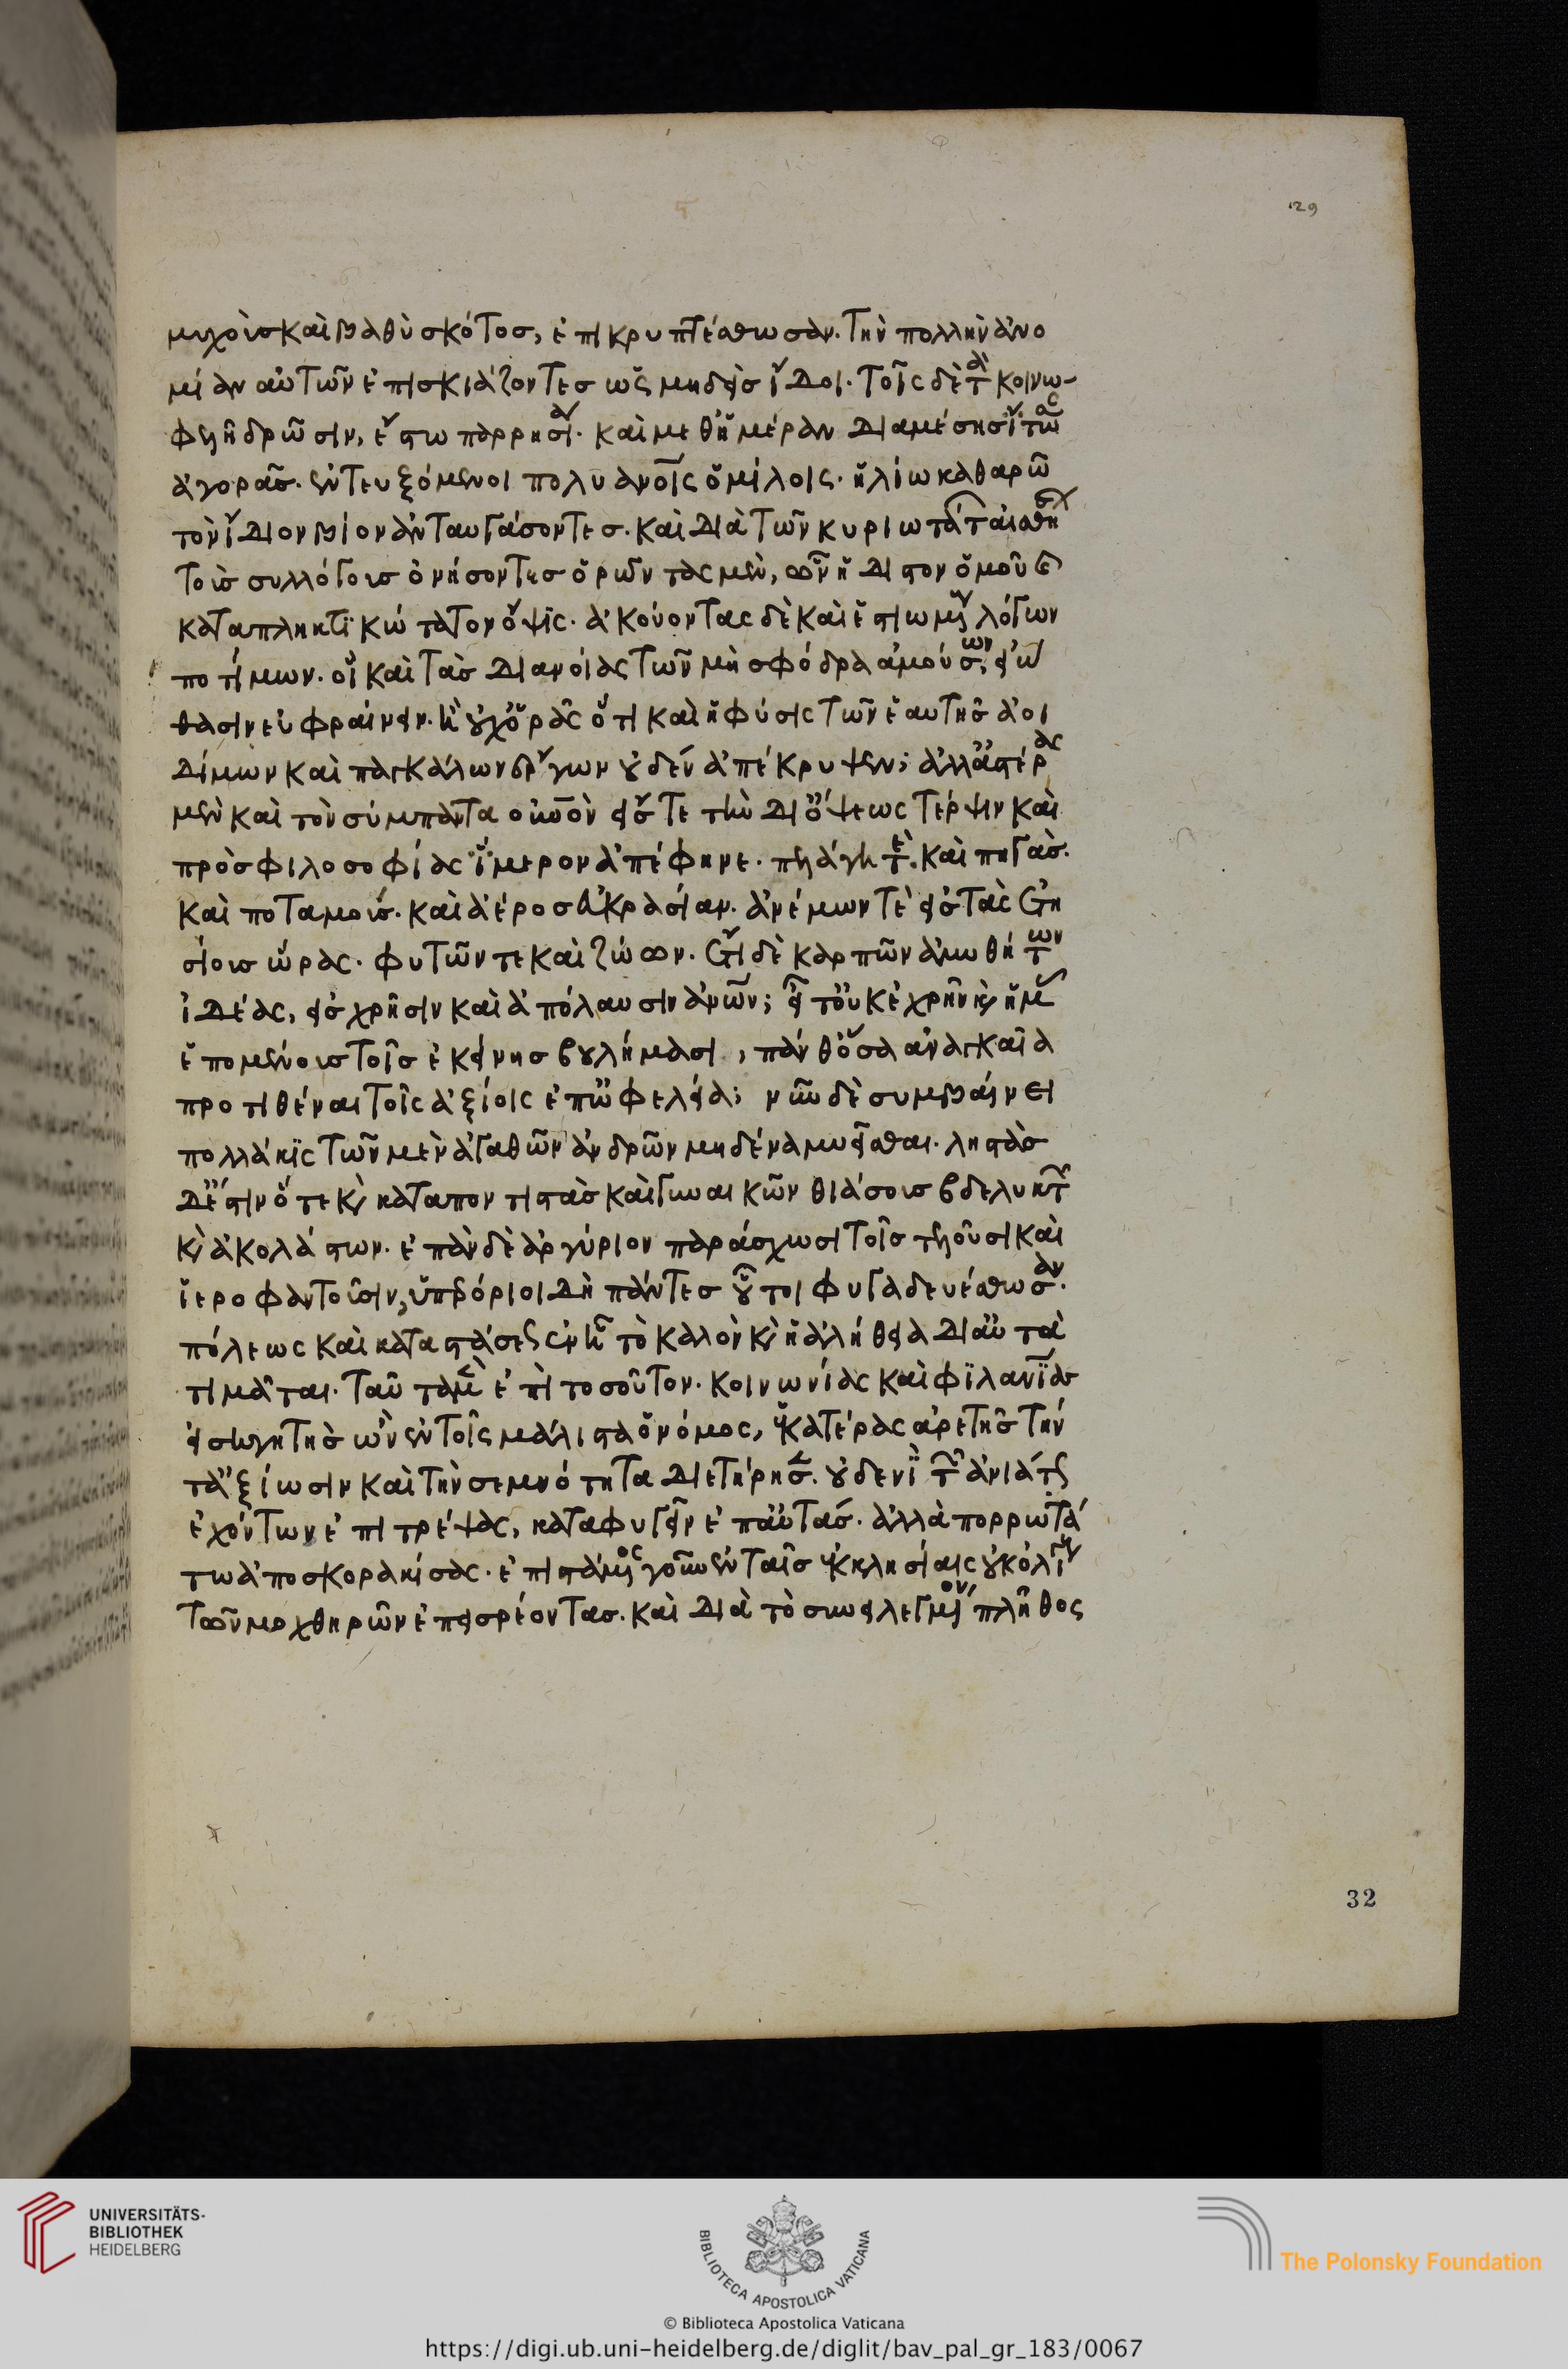 29
μυχοὺς καὶ βαθὺ σκότος, ἐπικρυπτέσθωσαν. τὴν πολλὴν ἀνο
μίαν αὑτῶν ἐπισκιάζοντες ὡς μηδεὶς ἴδοι. τοῖς δὲ τὰ κοινω-
φελῆ δρῶσιν, ἔστω παρρησία. καὶ μεθ ἡμέραν διαμέσης ἴτωσ
ἀγορᾶς. ἐντευξόμενοι πολυανοις ὁμίλοις. ἡλίω καθαρῶ
τὸν ἴδιον βίον ἀνταυγάσοντες. καὶ διὰ τῶν κυριωτάτ αἰσθη
τοὺς συλλόγους ὀνήσοντες ὁρῶντας μὲν, ὧν ἡδιστον ὁμοῦ καὶ
καταπληκτικώτατον ὄψις. ἀκούοντας δὲ καὶ ἑστιωμ λόγων
ποτίμων. οἳ καὶ τὰς διανοίας τῶν μὴ σφόδρα ἀμούσων, εἰώ
θασιν εὐφραίνειν. ἢ οὐχ ὁρᾶς ὅτι καὶ ἡ φύσις τῶν ἑαυτῆς ἀοι
δίμων καὶ παγκάλων ἔργων οὐδὲν ἀπέκρυψεν; ἀλλ ἀστέρας
μὲν καὶ τὸν σύμπαντα οὐνὸν εἴς τε τὴν δι ὄψεως τέρψιν καὶ
πρὸς φιλοσοφίας ἵμερον ἀπέφηνε. πελάγη τὲ. καὶ πηγὰς.
καὶ ποταμοὺς. καὶ ἀέρος εὐκρασίαν. ἀνέμων τὲ εἰς τὰς ἐτη
σίους ὥρας. φυτῶν τε καὶ ζώων. ἔτι δὲ καρπῶν ἀμυθήτων
ἰδέας, εἰς χρῆσιν καὶ ἀπόλαυσιν ἀνων; εἶτ οὐκ ἐχρῆν κ ἡμᾶς
ἑπομένους τοῖς ἐκείνης βουλήμασι, πάνθ ὅσα ἀναγκαῖα
προτιθέναι τοῖς ἀξίοις ἐπ ὠφελεία; νυνὶ δὲ συμβαίνει
πολλάκις τῶν μὲν ἀγαθῶν ἀνδρῶν μηδένα μυεῖσθαι. ληστὰς
δὲ ἔστιν ὅτε κ καταποντιστὰς καὶ γυναικῶν θιάσους βδελυκτῶν
κ ἀκολάστων. ἐπὰν δὲ ἀργύριον παράσχωσι τοῖς τελοῦσι καὶ
ἱεροφαντοῦσιν, ὑπερόριοι δὴ πάντες οὗτοι φυγαδευέσθωσαν.
πόλεως καὶ καταστάσεως ἐν ἧ τὸ καλὸν κ ἡ ἀλήθεια δι αὐτὰ
τιμᾶται. ταῦτα μὲν ἐπὶ τοσοῦτον. κοινωνίας καὶ φιλανίας
εἰσηγητὴς ὢν ἐν τοῖς μάλιστα ὁ νόμος, ἑκατέρας ἀρετῆς τήν
τ ἀξίωσιν καὶ τὴν σεμνότητα διετήρησεν. οὐδενὶ τῶν ἀνιάτως
ἐχόντων ἐπιτρέψας, καταφυγεῖν ἐπ αὐτάς. ἀλλὰ πορρωτά
τω ἀποσκορακίσας. ἐπιστάμενος γοῦν ἐν ταῖς ἐκκλησίαις οὐκ ὀλίγους
τῶν μοχθηρῶν ἐπεισρέοντας. καὶ διὰ τὸ συνειλεγμένον πλῆθος
32
UNIVERSITÄTS-
BIBLIOTHEK
HEIDELBERG
BIBLIOTECA APOSTOLICA VATICANA
The Polonsky Foundation
© Biblioteca Apostolica Vaticana
https://digi.ub.uni-heidelberg.de/diglit/bav_pal_gr_183/0067